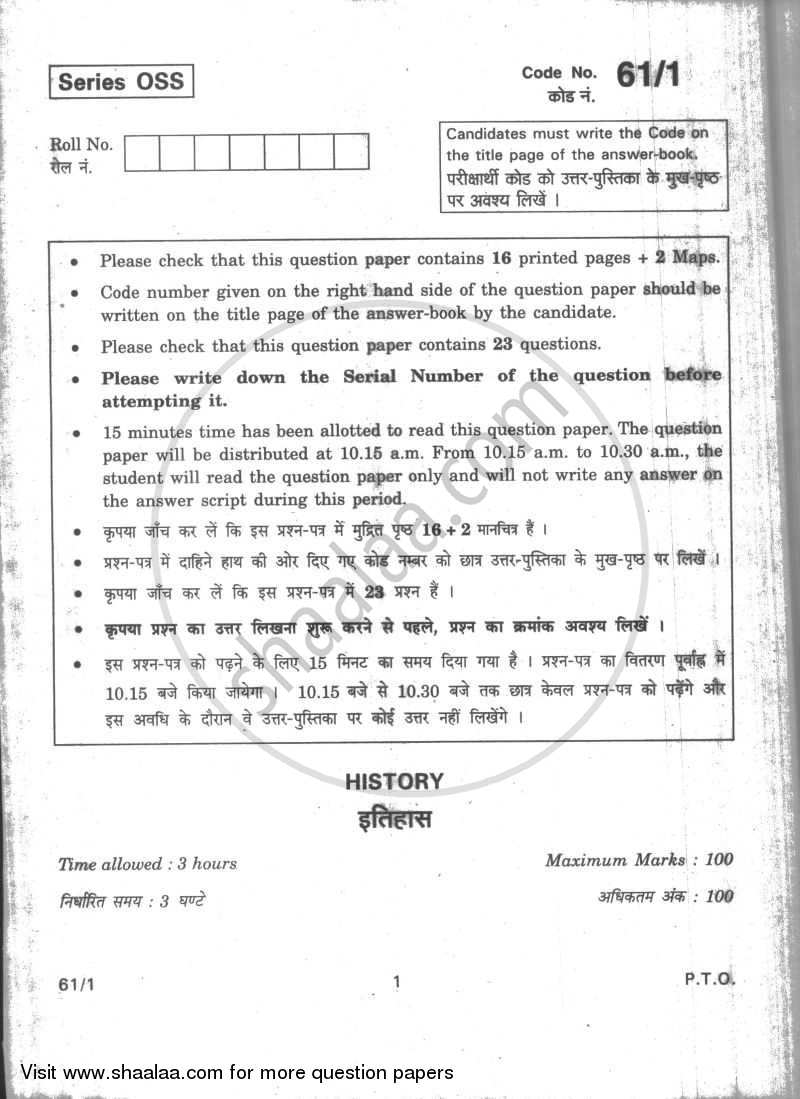 Series OSS
Code No. 61/1
कोड नं.
Roll No.
रौल नं.
Candidates must write the Code on
the title page of the answer-book.
परीक्षार्थी कोड को उत्तर-पुस्तिका के मुख-पृष्ठ
पर अवश्य लिखें ।
• Please check that this question paper contains 16 printed pages + 2 Maps.
• Code number given on the right hand side of the question paper should be
written on the title page of the answer-book by the candidate.
• Please check that this question paper contains 23 questions.
• Please write down the Serial Number of the question before
attempting it.
• 15 minutes time has been allotted to read this question paper. The question
paper will be distributed at 10.15 a.m. From 10.15 a.m. to 10.30 a.m., the
student will read the question paper only and will not write any answer on
the answer script during this period.
• कृपया जाँच कर लें कि इस प्रश्न-पत्र में मुद्रित पृष्ठ 16 + 2 मानचित्र हैं ।
• प्रश्न-पत्र में दाहिने हाथ की ओर दिए गए कोड नम्बर को छात्र उत्तर-पुस्तिका के मुख-पृष्ठ पर लिखें ।
• कृपया जाँच कर लें कि इस प्रश्न-पत्र में 23 प्रश्न हैं ।
• कृपया प्रश्न का उत्तर लिखना शुरू करने से पहले, प्रश्न का क्रमांक अवश्य लिखें ।
• इस प्रश्न-पत्र को पढ़ने के लिए 15 मिनट का समय दिया गया है । प्रश्न-पत्र का वितरण पूर्वाह्न में
10.15 बजे किया जायेगा । 10.15 बजे से 10.30 बजे तक छात्र केवल प्रश्न-पत्र को पढ़ेंगे और
इस अवधि के दौरान वे उत्तर-पुस्तिका पर कोई उत्तर नहीं लिखेंगे ।
shaalaa.com
HISTORY
इतिहास
Time allowed : 3 hours
Maximum Marks : 100
निर्धारित समय : 3 घण्टे
अधिकतम अंक : 100
61/1
1
P.T.O.
Visit www.shaalaa.com for more question papers